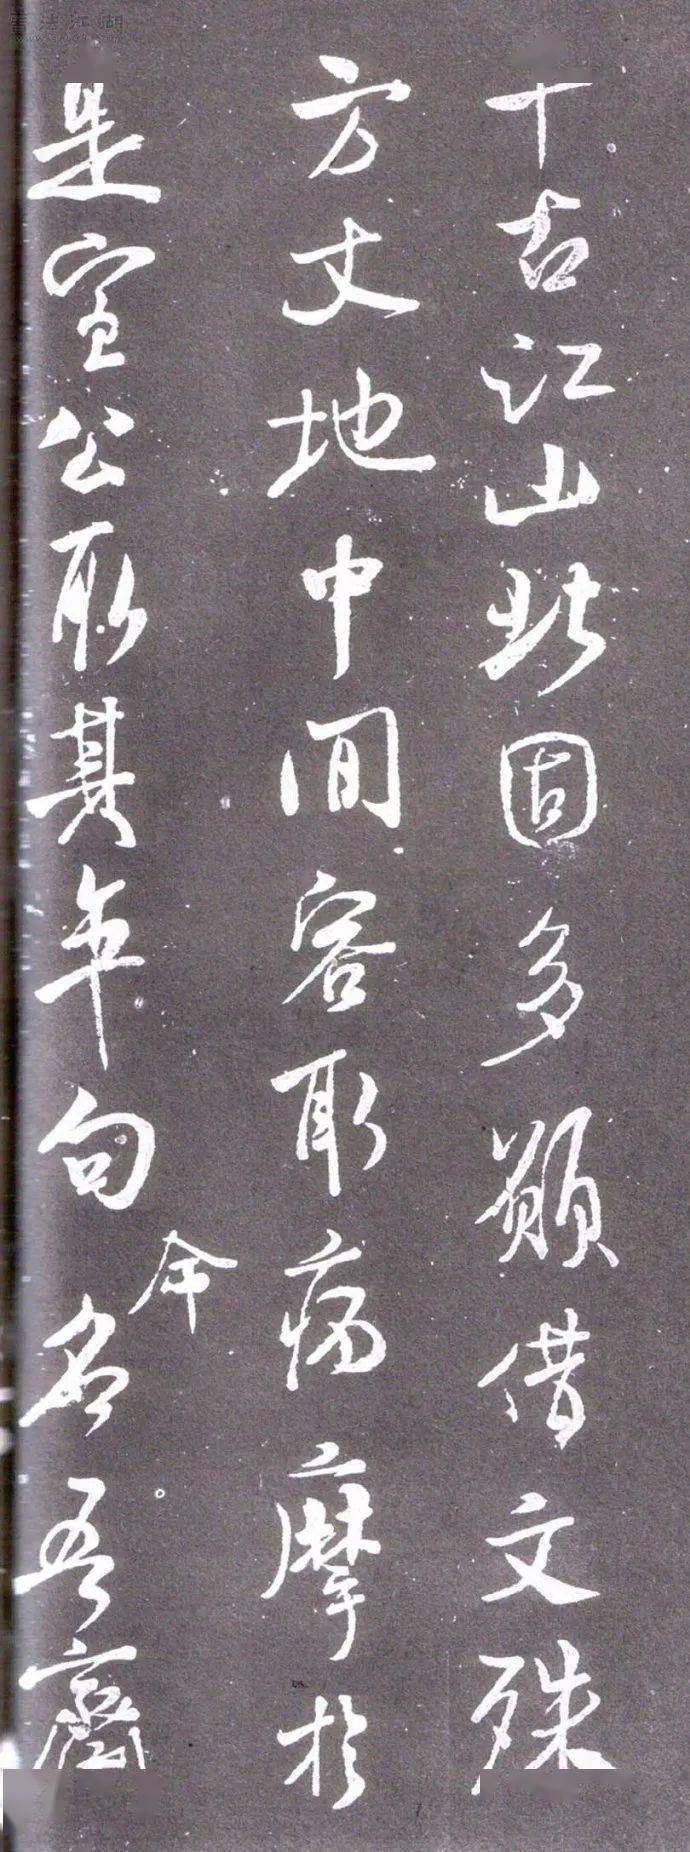 書法江湖
千古江山此固多願借文殊
方丈地中間容取病摩於
是室公取其年句今名吾齋